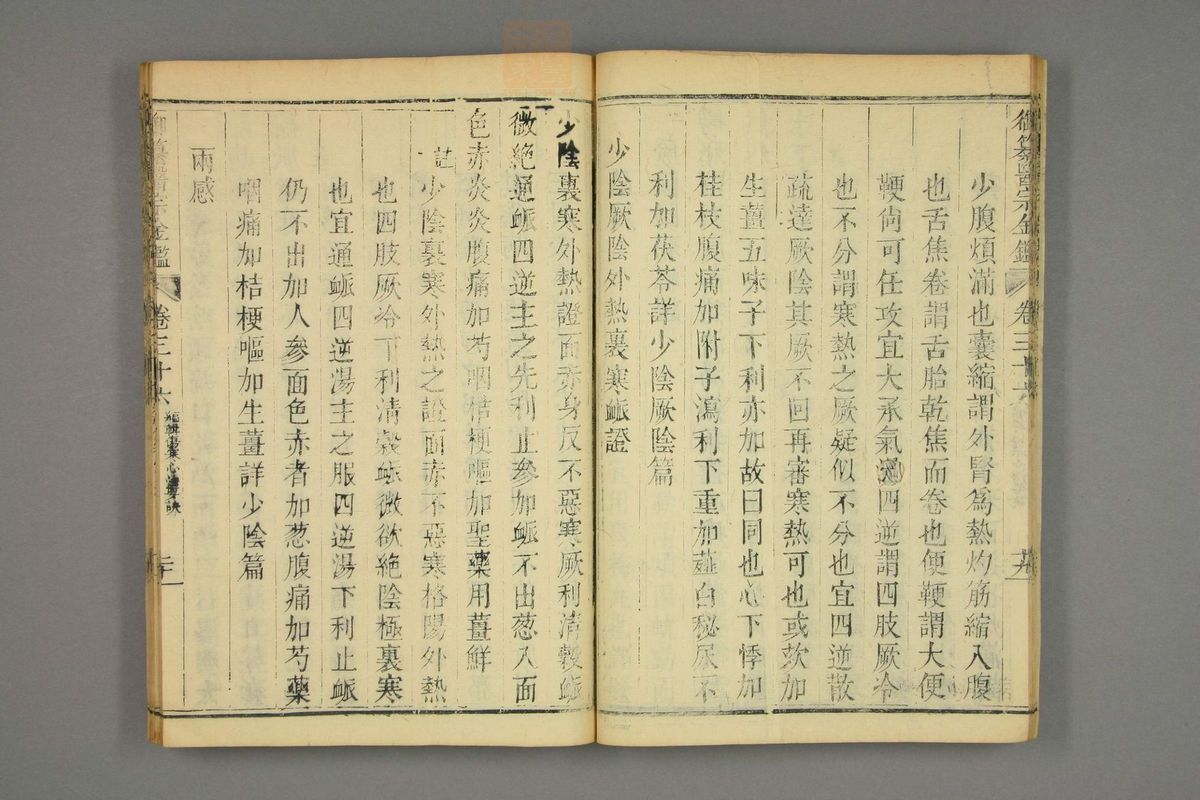 御纂醫宗金鑑
卷三十六
少腹煩滿也囊縮謂外腎為熱灼筋縮入腹
也舌焦卷謂舌胎乾焦而卷也便鞕謂大便
鞕尚可任攻宜大承氣湯四逆謂四肢厥冷
也不分謂寒熱之厥疑似不分也宜四逆散
疏達厥陰其厥不回再審寒熱可也或欬加
生薑五味子下利亦加故曰同也心下悸加
桂枝腹痛加附子瀉利下重加薤白秘尿不
利加茯苓詳少陰厥陰篇
少陰厥陰外熱裏寒䘑證
少陰裏寒外熱證面赤身反不惡寒厥利清穀䘑
微絶通䘑四逆主之先利止參加䘑不出葱入面
色赤炎炎腹痛加芍咽桔梗嘔加聖藥用薑鮮
註少陰裏寒外熱之證面赤不惡寒格陽外熱
也四肢厥冷下利清穀䘑微欲絶陰極裏寒
也宜通䘑四逆湯主之服四逆湯下利止䘑
仍不出加人參面色赤者加葱腹痛加芍藥
咽痛加桔梗嘔加生薑詳少陰篇
兩感
御纂醫宗金鑑
卷三十六
編輯傷寒心法要訣
二十